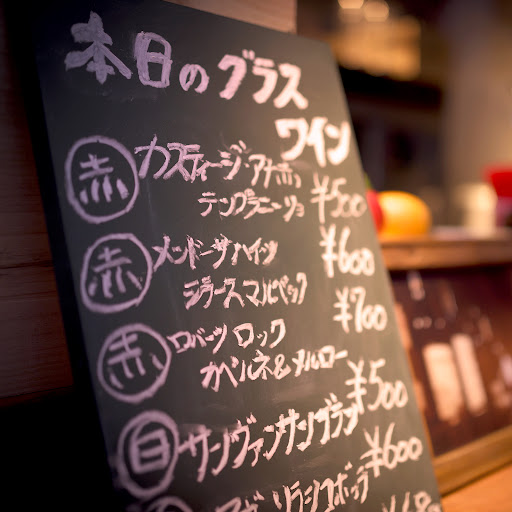 本日のグラス
ワイン
赤 カスティージ・アナホ
テンプラニーリョ ¥500
赤 メンドーサハイツ ¥600
シラーズマルベック ¥700
赤 ロバーツロック
カベルネ&メルロー
¥500
白 サンヴァンサンブラン
¥600